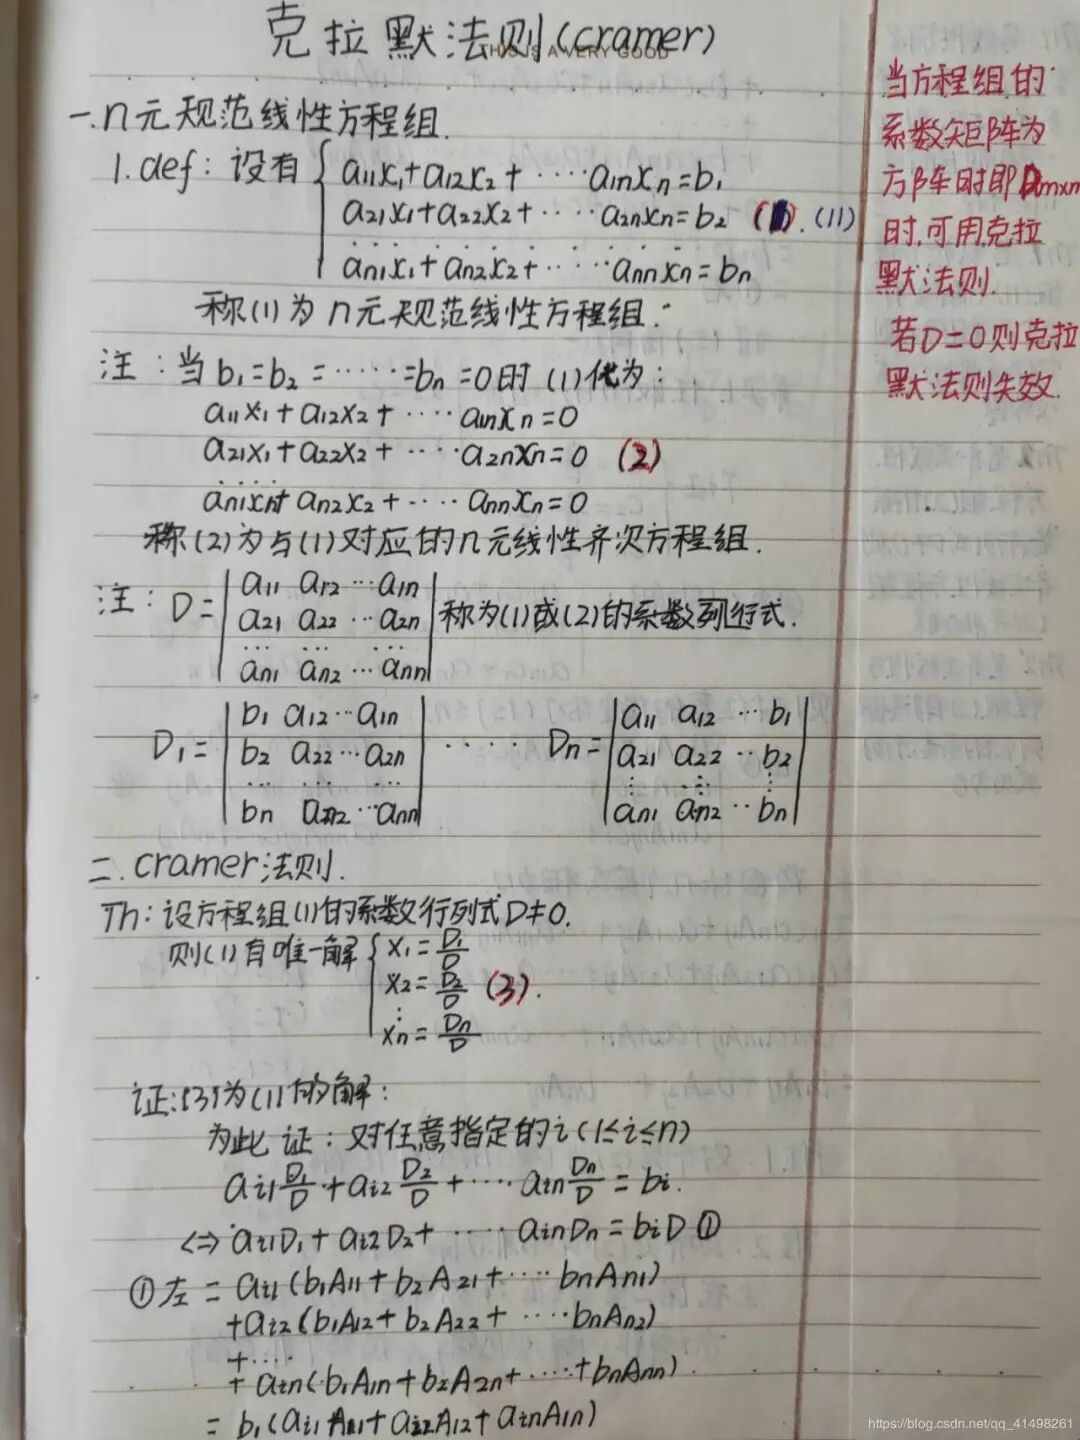 克拉默法则(cramer)
THIS IS A VERY GOOD
一.n元规范线性方程组.
1.def:设有 a11x1+a12x2+·····a1nxn=b1
a21x1+a22x2+·····a2nxn=b2 (1).(11)
··········
an1x1+an2x2+·····annxn=bn
称(1)为n元规范线性方程组.
注:当b1=b2=·····=bn=0时(1)化为:
a11x1+a12x2+····a1nxn=0
a21x1+a22x2+····a2nxn=0 (2)
·····
an1x1+an2x2+····annxn=0
称(2)为与(1)对应的n元线性齐次方程组.
注:D=|a11 a12 ···a1n|
|a21 a22 ···a2n| 称为(1)或(2)的系数列行式.
··· ··· ···
|an1 an2 ···ann|
D1=|b1 a12···a1n|
|b2 a22···a2n|
··· ··· ···
|bn an2···ann|
····· Dn=|a11 a12 ···b1|
|a21 a22 ··b2|
⋮ ⋮ ⋮
|an1 an2 ··bn|
二.cramer法则.
Th:设方程组(1)的系数行列式D≠0.
则(1)有唯一解 x1=D1/D
x2=D2/D (3).
⋮
xn=Dn/D
证:(3)为(1)的解:
为此证:对任意指定的i(1≤i≤n)
ai1D1/D+ai2D2/D+····ainDn/D=bi.
<=>ai1D1+ai2D2+·····ainDn=biD①
①左=ai1(b1A11+b2A21+····bnAn1)
+ai2(b1A12+b2A22+····bnAn2)
+····
+ain(b1A1n+b2A2n+····+bnAnn)
=b1(ai1A11+ai2A12+ainA1n)
当方程组的
系数矩阵为
方阵时即Dm×n
时,可用克拉
默法则.
若D=0则克拉
默法则失效.
https://blog.csdn.net/qq_41498261